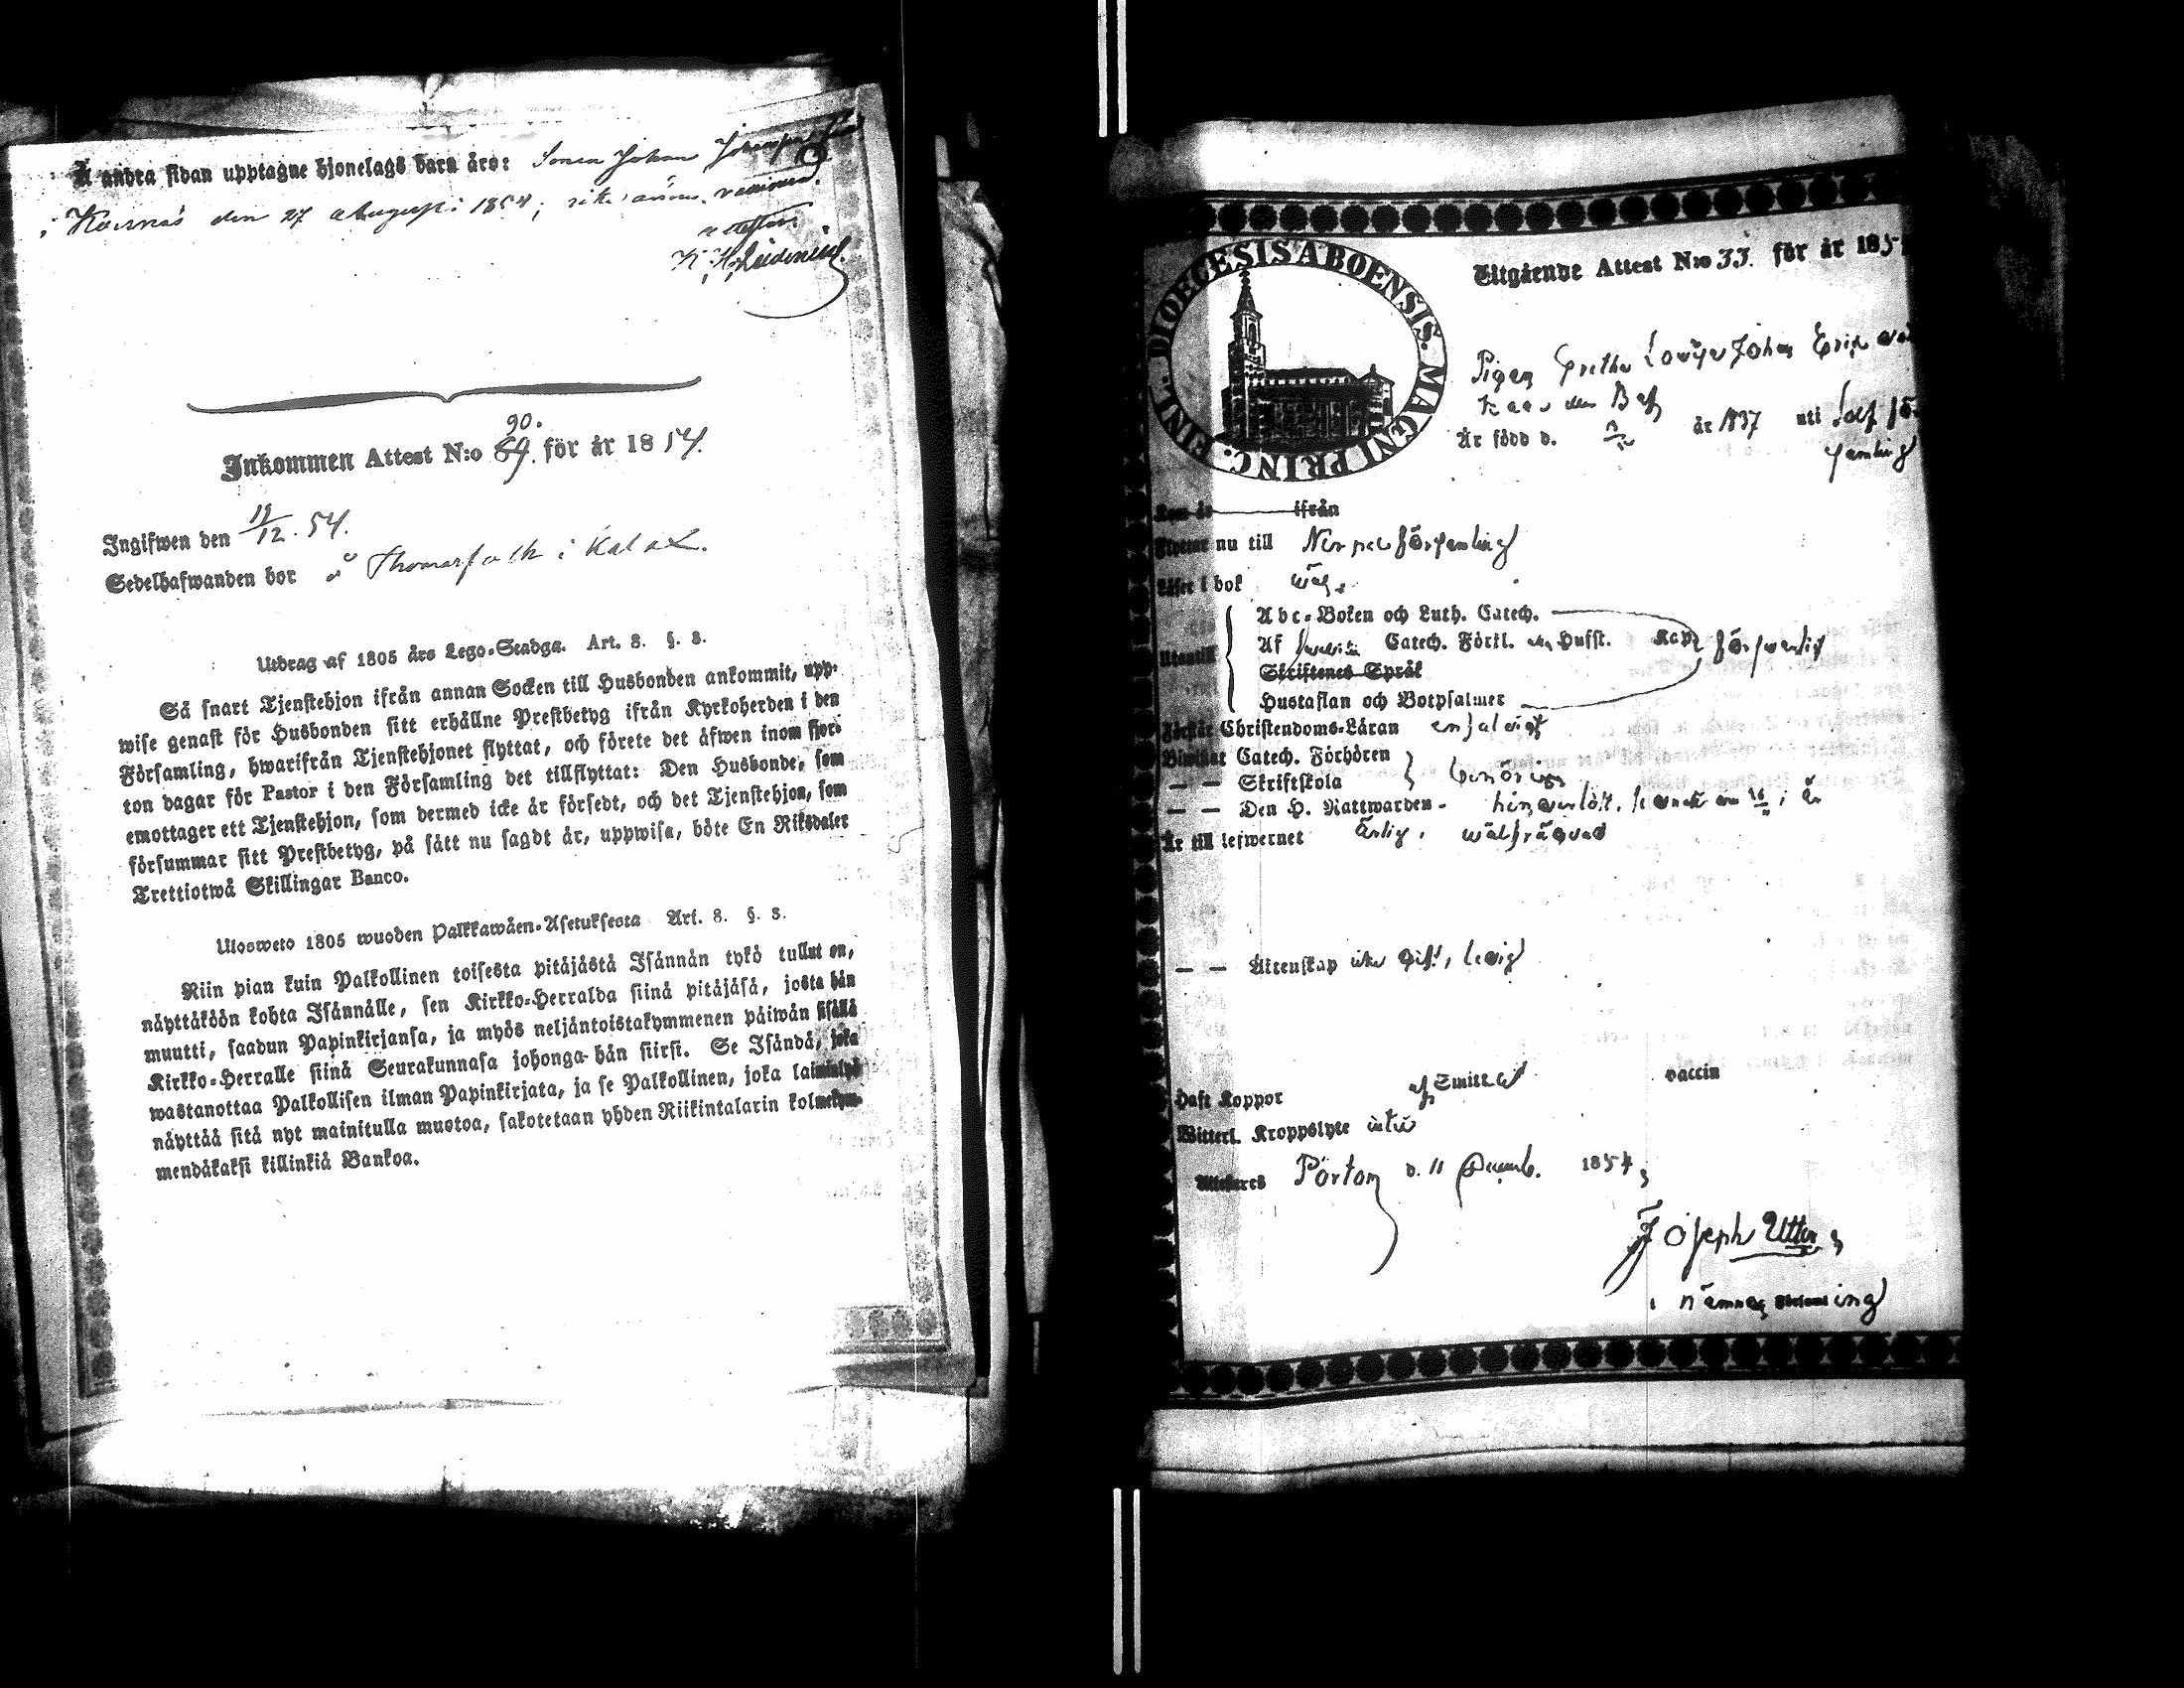 Å andra sidan upptagne hjonelags barn äro: Sonen Johan
i den 27 Augusti 1854;
K. H.
90.
Inkommen Attest N:o 89. för år 1854.
Ingifwen den 19/12. 54.
Sedelhafwanden bor å i Kalax.
Utdrag af 1805 års Lego-Stadga. Art. 8. §. 3.
Så snart Tjenstehjon ifrån annan Socken till Husbonden ankommit, upp-
wise genast för Husbonden sitt erhållne Prestbetyg ifrån Kyrkoherden i den
Församling, hwarifrån Tjenstehjonet flyttat, och förete det äfwen inom fjor-
ton dagar för Pastor i den Församling det tillflyttat: Den Husbonde, som
emottager ett Tjenstehjon, som dermed icke är försedt, och det Tjenstehjon, som
försummar sitt Prestbetyg, på sätt nu sagdt är, uppwisa, böte En Riksdaler
Trettiotwå Skillingar Banco.
Ulosweto 1805 wuoden Palkkawäen-Asetuksesta Art. 8. §. 3.
Niin pian kuin Palkollinen toisesta pitäjästä Isännän tykö tullut on,
näyttäköön kohta Isännälle, sen Kirkko-Herralda siinä pitäjäsä, josta hän
muutti, saadun Papinkirjansa, ja myös neljäntoistakymmenen päiwän sisällä
Kirkko-Herralle siinä Seurakunnasa johonga hän siirsi. Se Isändä, joka
wastanottaa Palkollisen ilman Papinkirjata, ja se Palkollinen, joka laiminlyö
näyttää sitä nyt mainitulla muotoa, sakotetaan yhden Riikintalarin kolmekym-
mendäkaksi killinkiä Bankoa.
DIOECESIS ABOENSIS. MAGNI PRINC. FINL.
Utgående Attest N:o 33. för år 185
Pigan Greta Lovisa Johan Eriks
Är född d. år 1837 uti
Kom år ifrån
Flyttar nu till församling
Läser i bok wäl.
Utantill
Abc-Boken och Luth. Catech.
Af Catech. Förkl. Hufst. Kap
Skriftenes Språk
Hustaflan och Botpsalmer
förswarligt
Förstår Christendoms-Läran enfaldigt
Biwistat Catech. Förhören
— — Skriftskola
— — Den H. Nattwarden
Är till lefwernet ärlig, wälfrägdad
— — Äktenskap icke gift, ledig
Haft Koppor vaccin
Witterl. Kroppslyte intet
Attesteras Pörtom d. 11 Decemb. 1854,
Joseph
i nämnde Församling